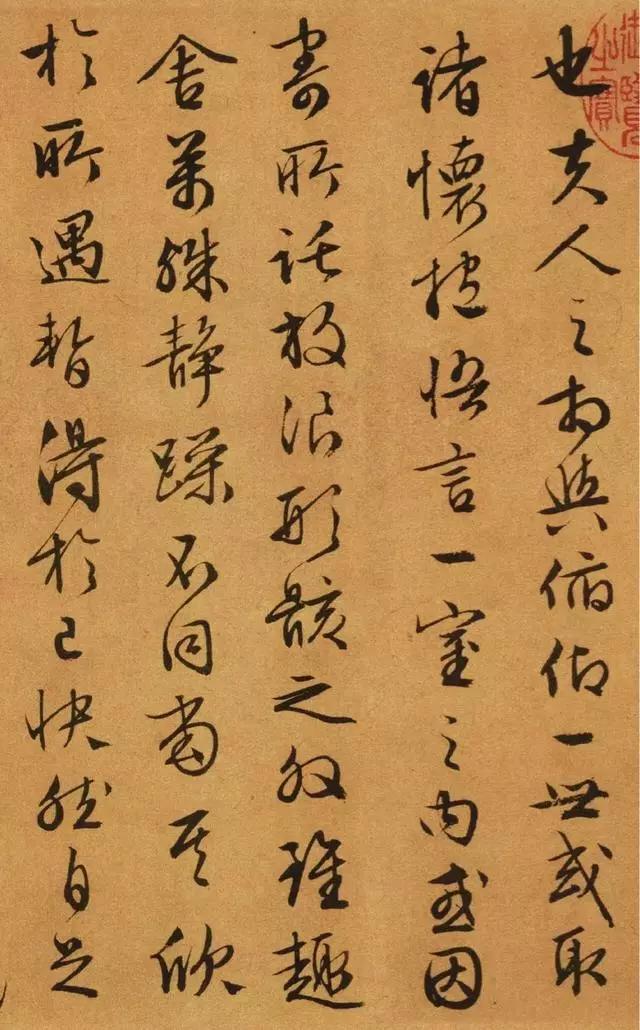 也夫人之相與俯仰一世或取
諸懷抱悟言一室之内或因
寄所託放浪形骸之外雖趣
舍萬殊静躁不同當其欣
於所遇暫得於己快然自足
御覽之寶